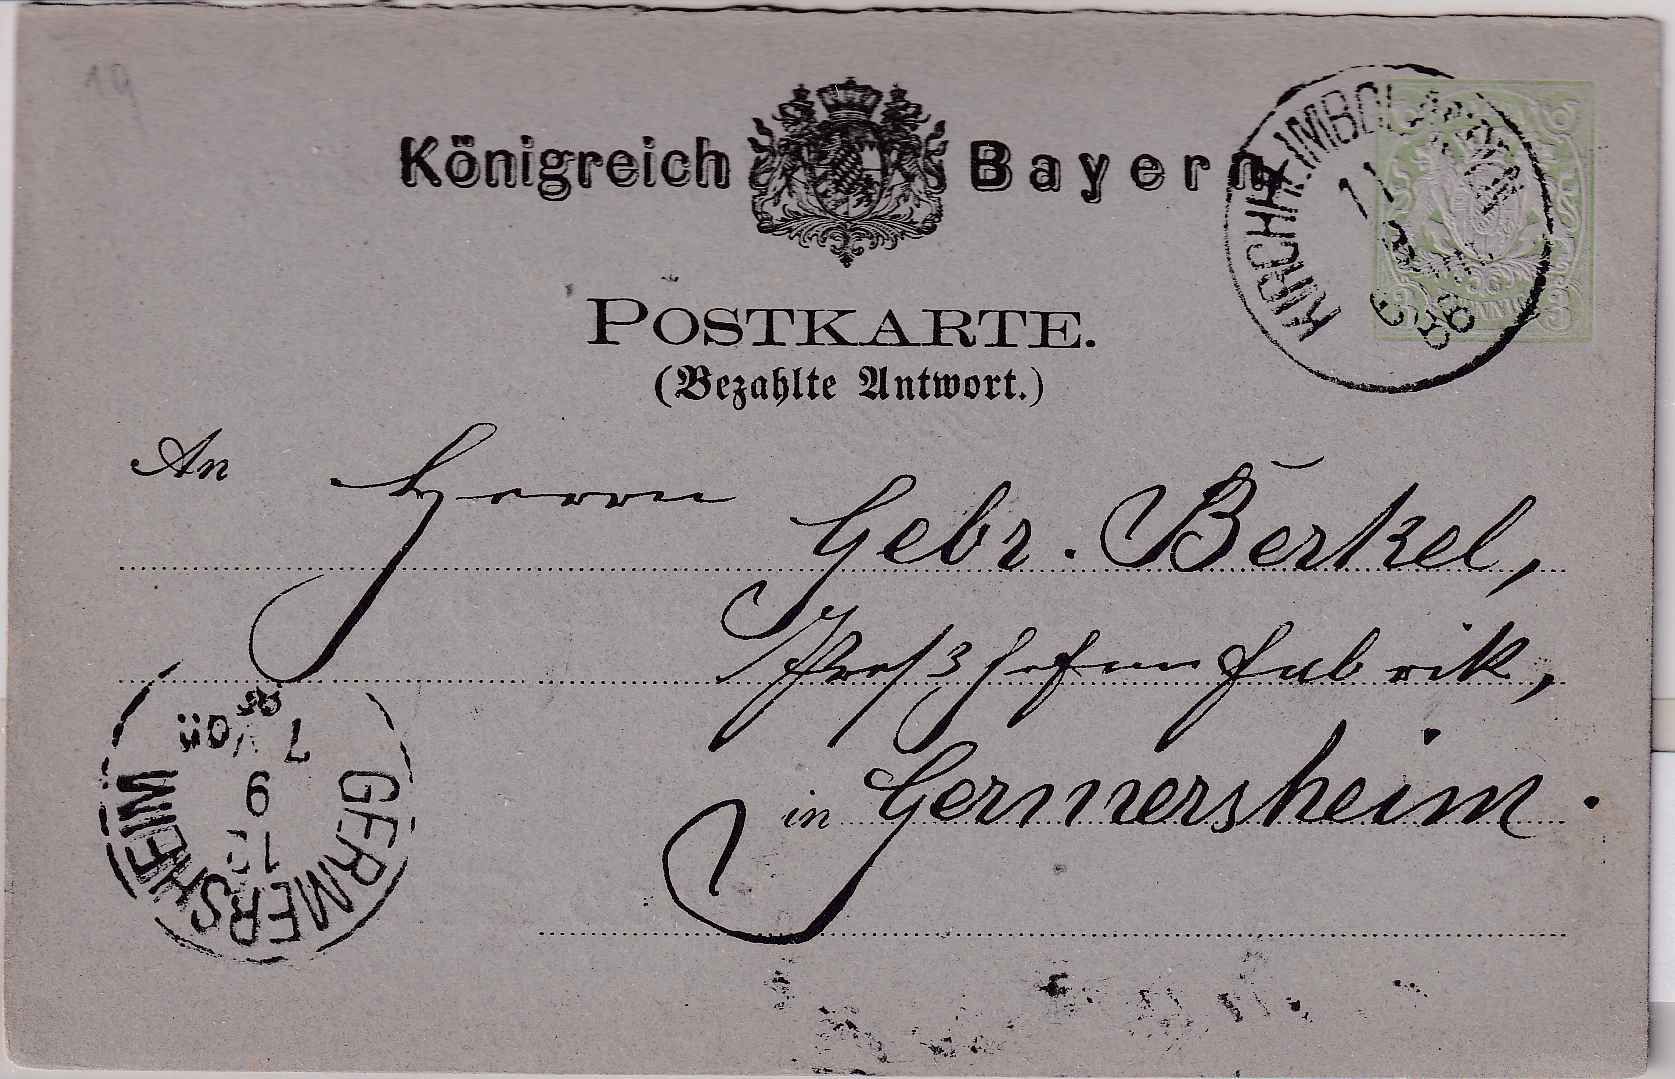 19
Königreich Bayern
KIRCHHEIMBOLANDEN
11
POSTKARTE.
(Bezahlte Antwort.)
An Herrn Gebr. Berkel,
Preßhefenfabrik,
in Germersheim.
GERMERSHEIM
10
9
7